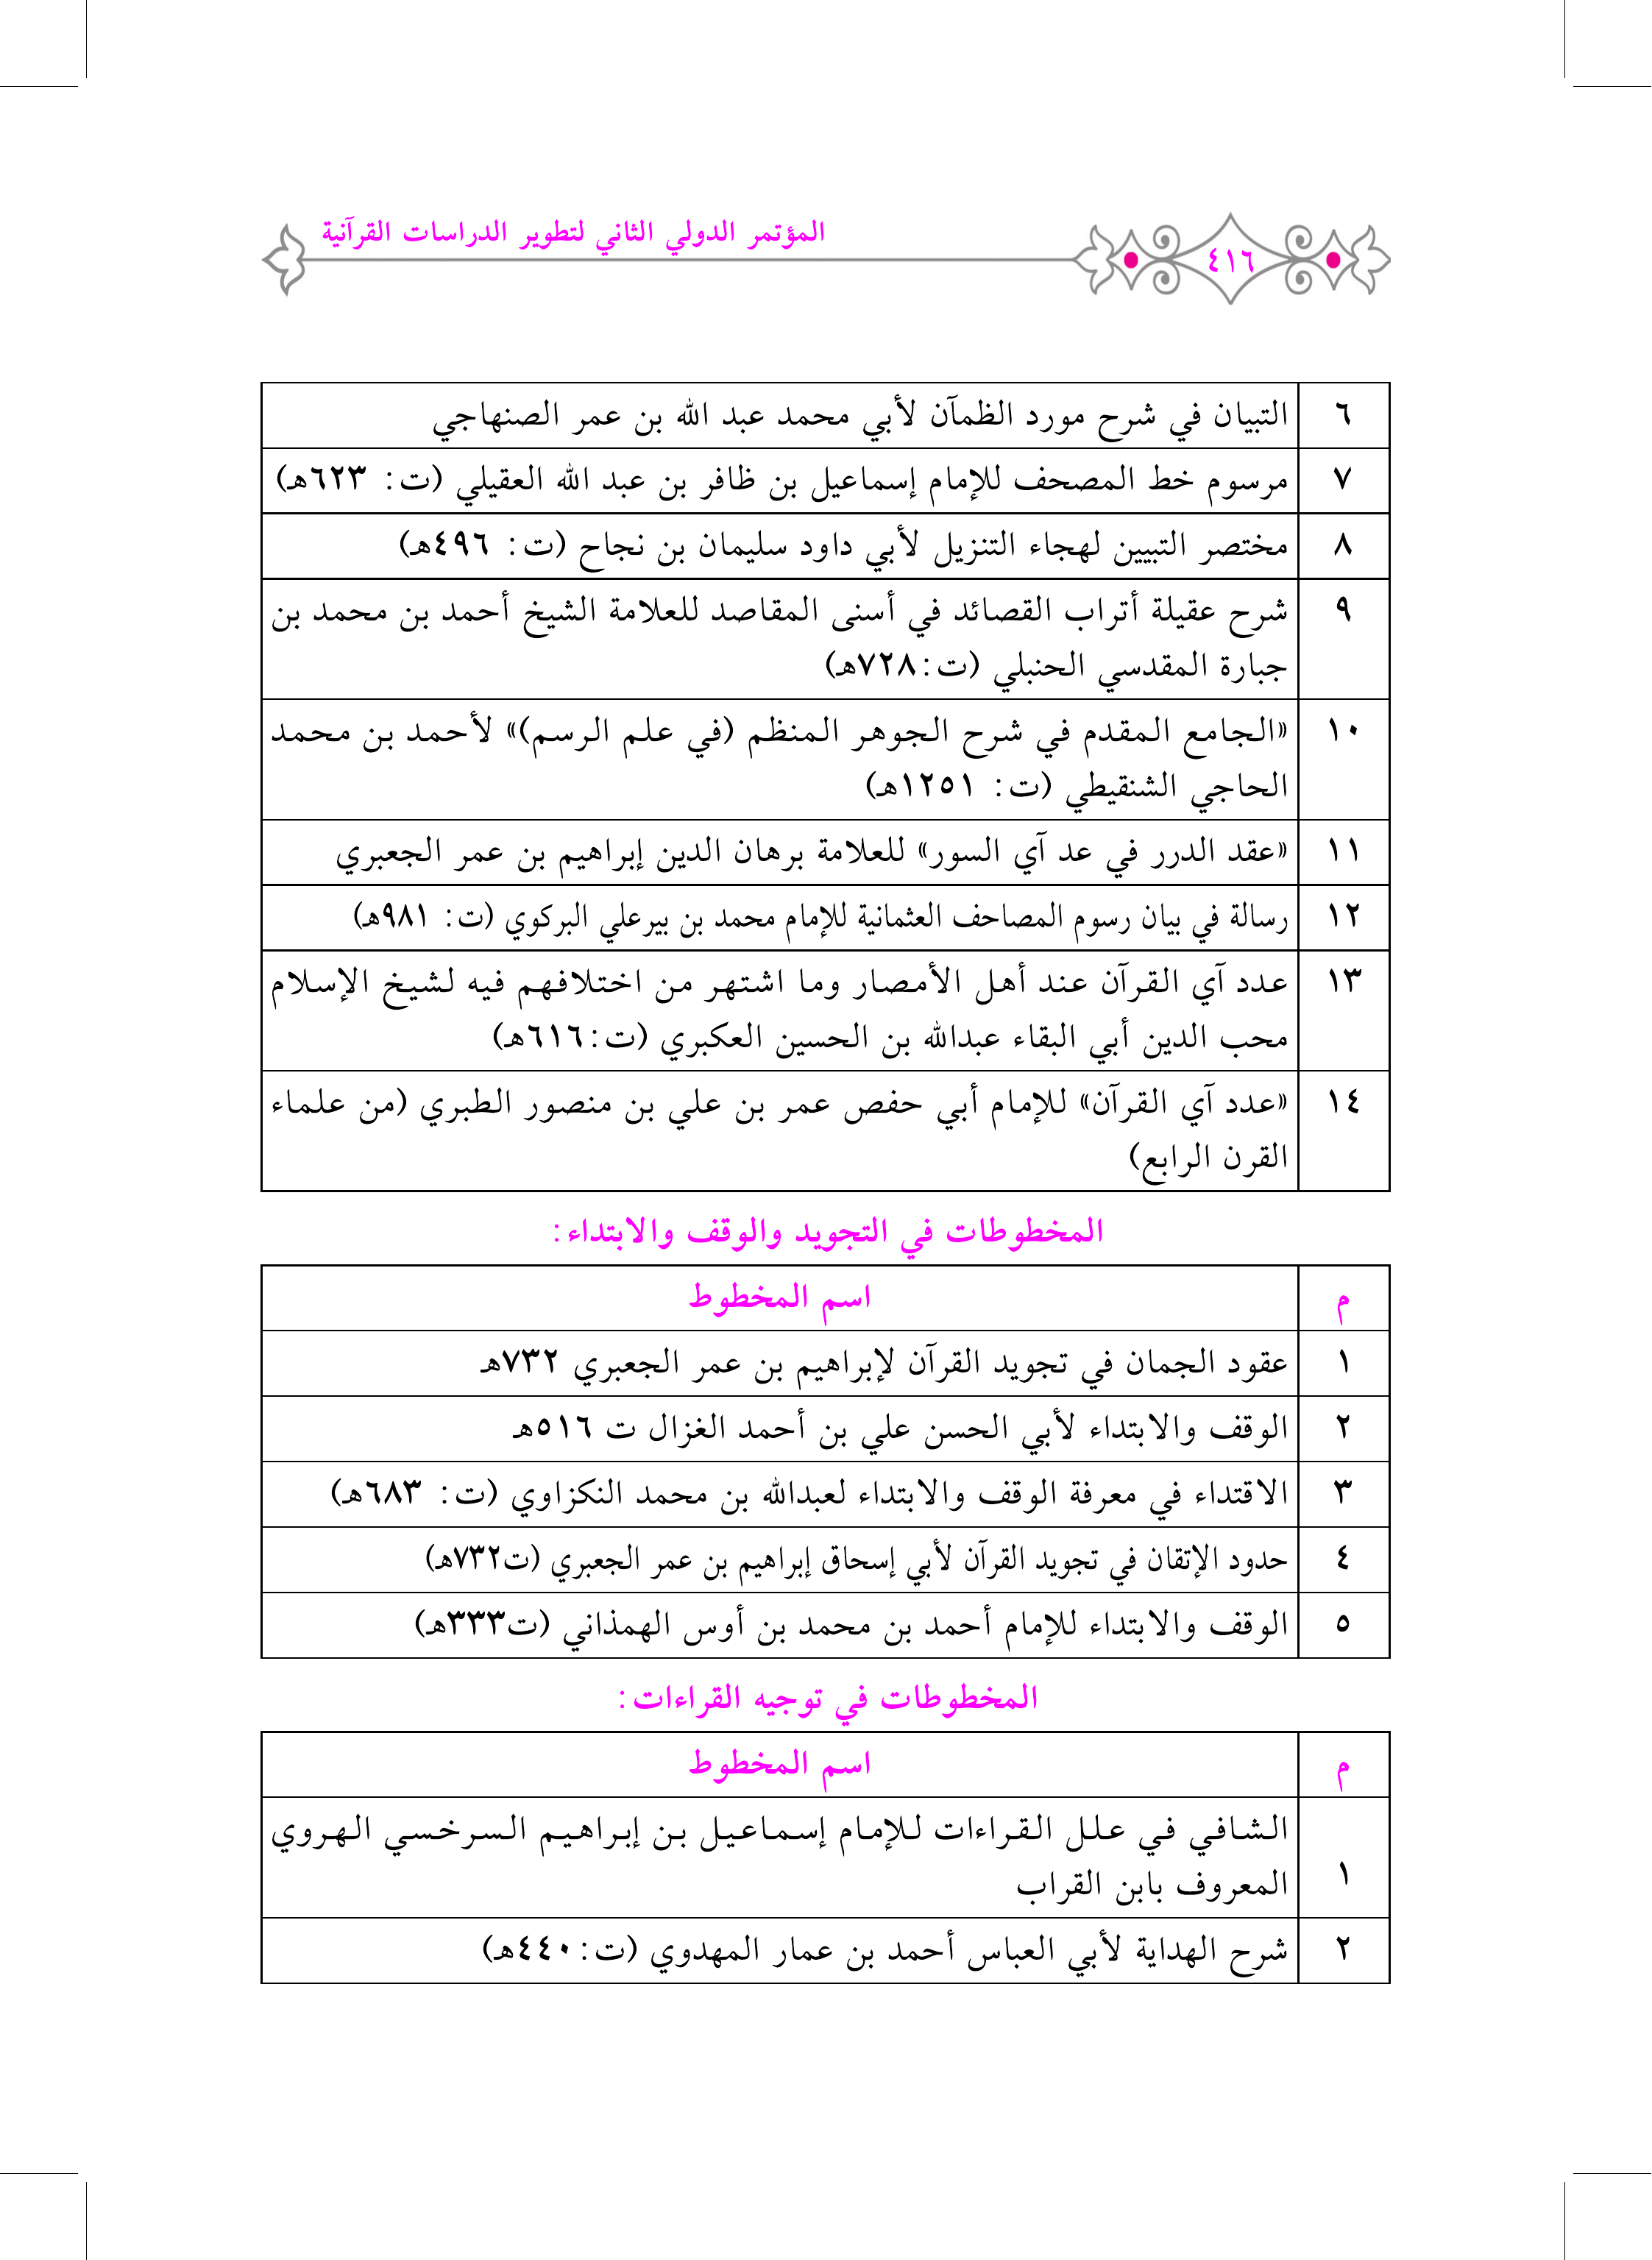 المؤتمر الدولي الثاني لتطوير الدراسات القرآنية
٤١٦
٦ التبيان في شرح مورد الظمآن لأبي محمد عبد الله بن عمر الصنهاجي
٧ مرسوم خط المصحف للإمام إسماعيل بن ظافر بن عبد الله العقيلي (ت: ٦٢٣هـ)
٨ مختصر التبيين لهجاء التنزيل لأبي داود سليمان بن نجاح (ت: ٤٩٦هـ)
٩ شرح عقيلة أتراب القصائد في أسنى المقاصد للعلامة الشيخ أحمد بن محمد بن
جبارة المقدسي الحنبلي (ت:٧٢٨هـ)
١٠ «الجامع المقدم في شرح الجوهر المنظم (في علم الرسم)» لأحمد بن محمد
الحاجي الشنقيطي (ت: ١٢٥١هـ)
١١ «عقد الدرر في عد آي السور» للعلامة برهان الدين إبراهيم بن عمر الجعبري
١٢ رسالة في بيان رسوم المصاحف العثمانية للإمام محمد بن بيرعلي البركوي (ت: ٩٨١هـ)
١٣ عدد آي القرآن عند أهل الأمصار وما اشتهر من اختلافهم فيه لشيخ الإسلام
محب الدين أبي البقاء عبدالله بن الحسين العكبري (ت:٦١٦هـ)
١٤ «عدد آي القرآن» للإمام أبي حفص عمر بن علي بن منصور الطبري (من علماء
القرن الرابع)
المخطوطات في التجويد والوقف والابتداء:
م اسم المخطوط
١ عقود الجمان في تجويد القرآن لإبراهيم بن عمر الجعبري ٧٣٢هـ
٢ الوقف والابتداء لأبي الحسن علي بن أحمد الغزال ت ٥١٦هـ
٣ الاقتداء في معرفة الوقف والابتداء لعبدالله بن محمد النكزاوي (ت: ٦٨٣هـ)
٤ حدود الإتقان في تجويد القرآن لأبي إسحاق إبراهيم بن عمر الجعبري (ت٧٣٢هـ)
٥ الوقف والابتداء للإمام أحمد بن محمد بن أوس الهمذاني (ت٣٣٣هـ)
المخطوطات في توجيه القراءات:
م اسم المخطوط
١ الشافي في علل القراءات للإمام إسماعيل بن إبراهيم السرخسي الهروي
المعروف بابن القراب
٢ شرح الهداية لأبي العباس أحمد بن عمار المهدوي (ت:٤٤٠هـ)